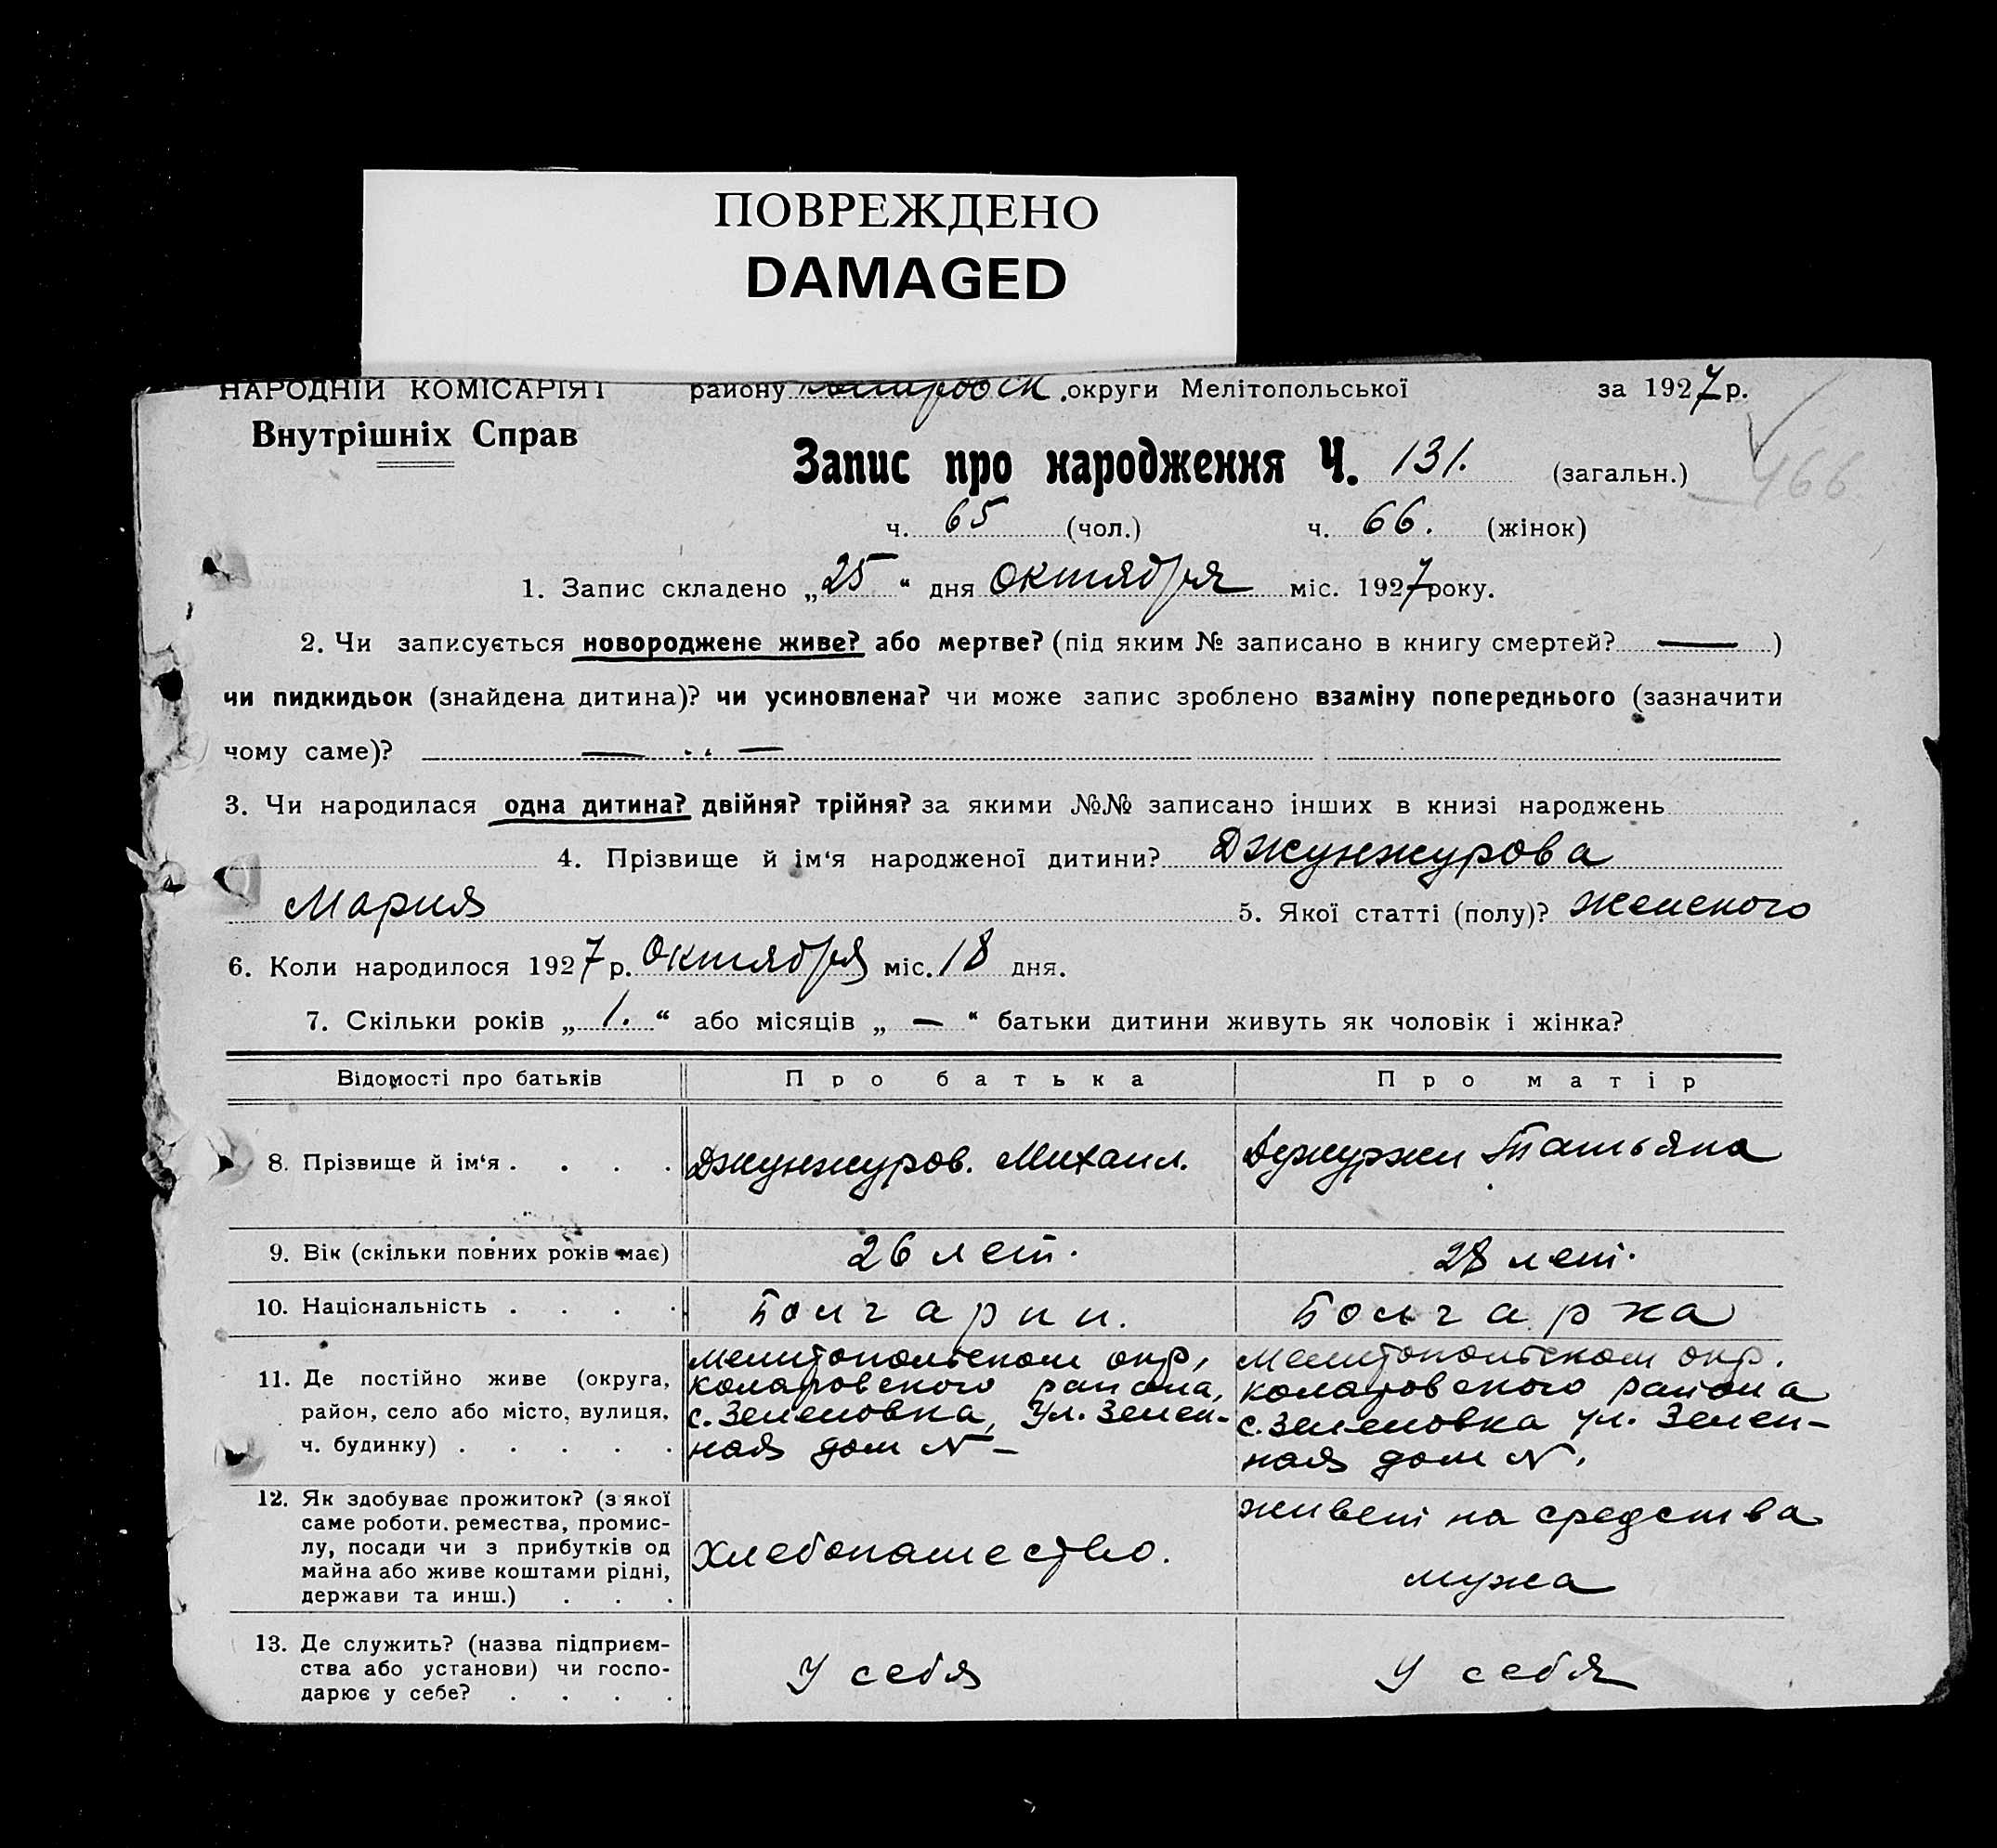 ПОВРЕЖДЕНО
DAMAGED
НАРОДНІЙ КОМІСАРІЯТ району округи Мелітопольської за 1927 р.
Внутрішніх Справ
Запис про народження Ч. 131. (загальн.)
466
ч. 65 (чол.) ч. 66. (жінок)
1. Запис складено „25“ дня октября міс. 1927 року.
2. Чи записується новороджене живе? або мертве? (під яким № записано в книгу смертей? — )
чи пидкидьок (знайдена дитина)? чи усиновлена? чи може запис зроблено взаміну попереднього (зазначити
чому саме)? — „ —
3. Чи народилася одна дитина? двійня? трійня? за якими №№ записано інших в книзі народжень
4. Прізвище й ім‘я народженої дитини? Джунжурова
Мария 5. Якої статті (полу)? женского
6. Коли народилося 1927 р. Октября міс. 18 дня.
7. Скільки років „ 1. “ або місяців „ — “ батьки дитини живуть як чоловік і жінка?
Відомості про батьків Про батька Про матір
8. Прізвище й ім‘я . . . . Джунжуров. Михаил. Татьяна
9. Вік (скільки повних років має) 26 лет. 28 лет.
10. Національність . . . . Болгарин. Болгарка
11. Де постійно живе (округа, район, село або місто, вулиця, ч. будинку) . . . . .
Мелитопольском окр,
коларовского района,
с. Зеленовка, Ул. Зелен-
ная дом N –
Мелитопольском окр.
коларовского района
с. Зеленовка ул. Зелен-
ная дом N.
12. Як здобуває прожиток? (з якої
саме роботи. ремества, промис-
лу, посади чи з прибутків од
майна або живе коштами рідні,
держави та инш.) . . .
Хлебопашество.
живет на средства
мужа
13. Де служить? (назва підприєм-
ства або установи) чи госпо-
дарює у себе? . . . .
У себя
У себя